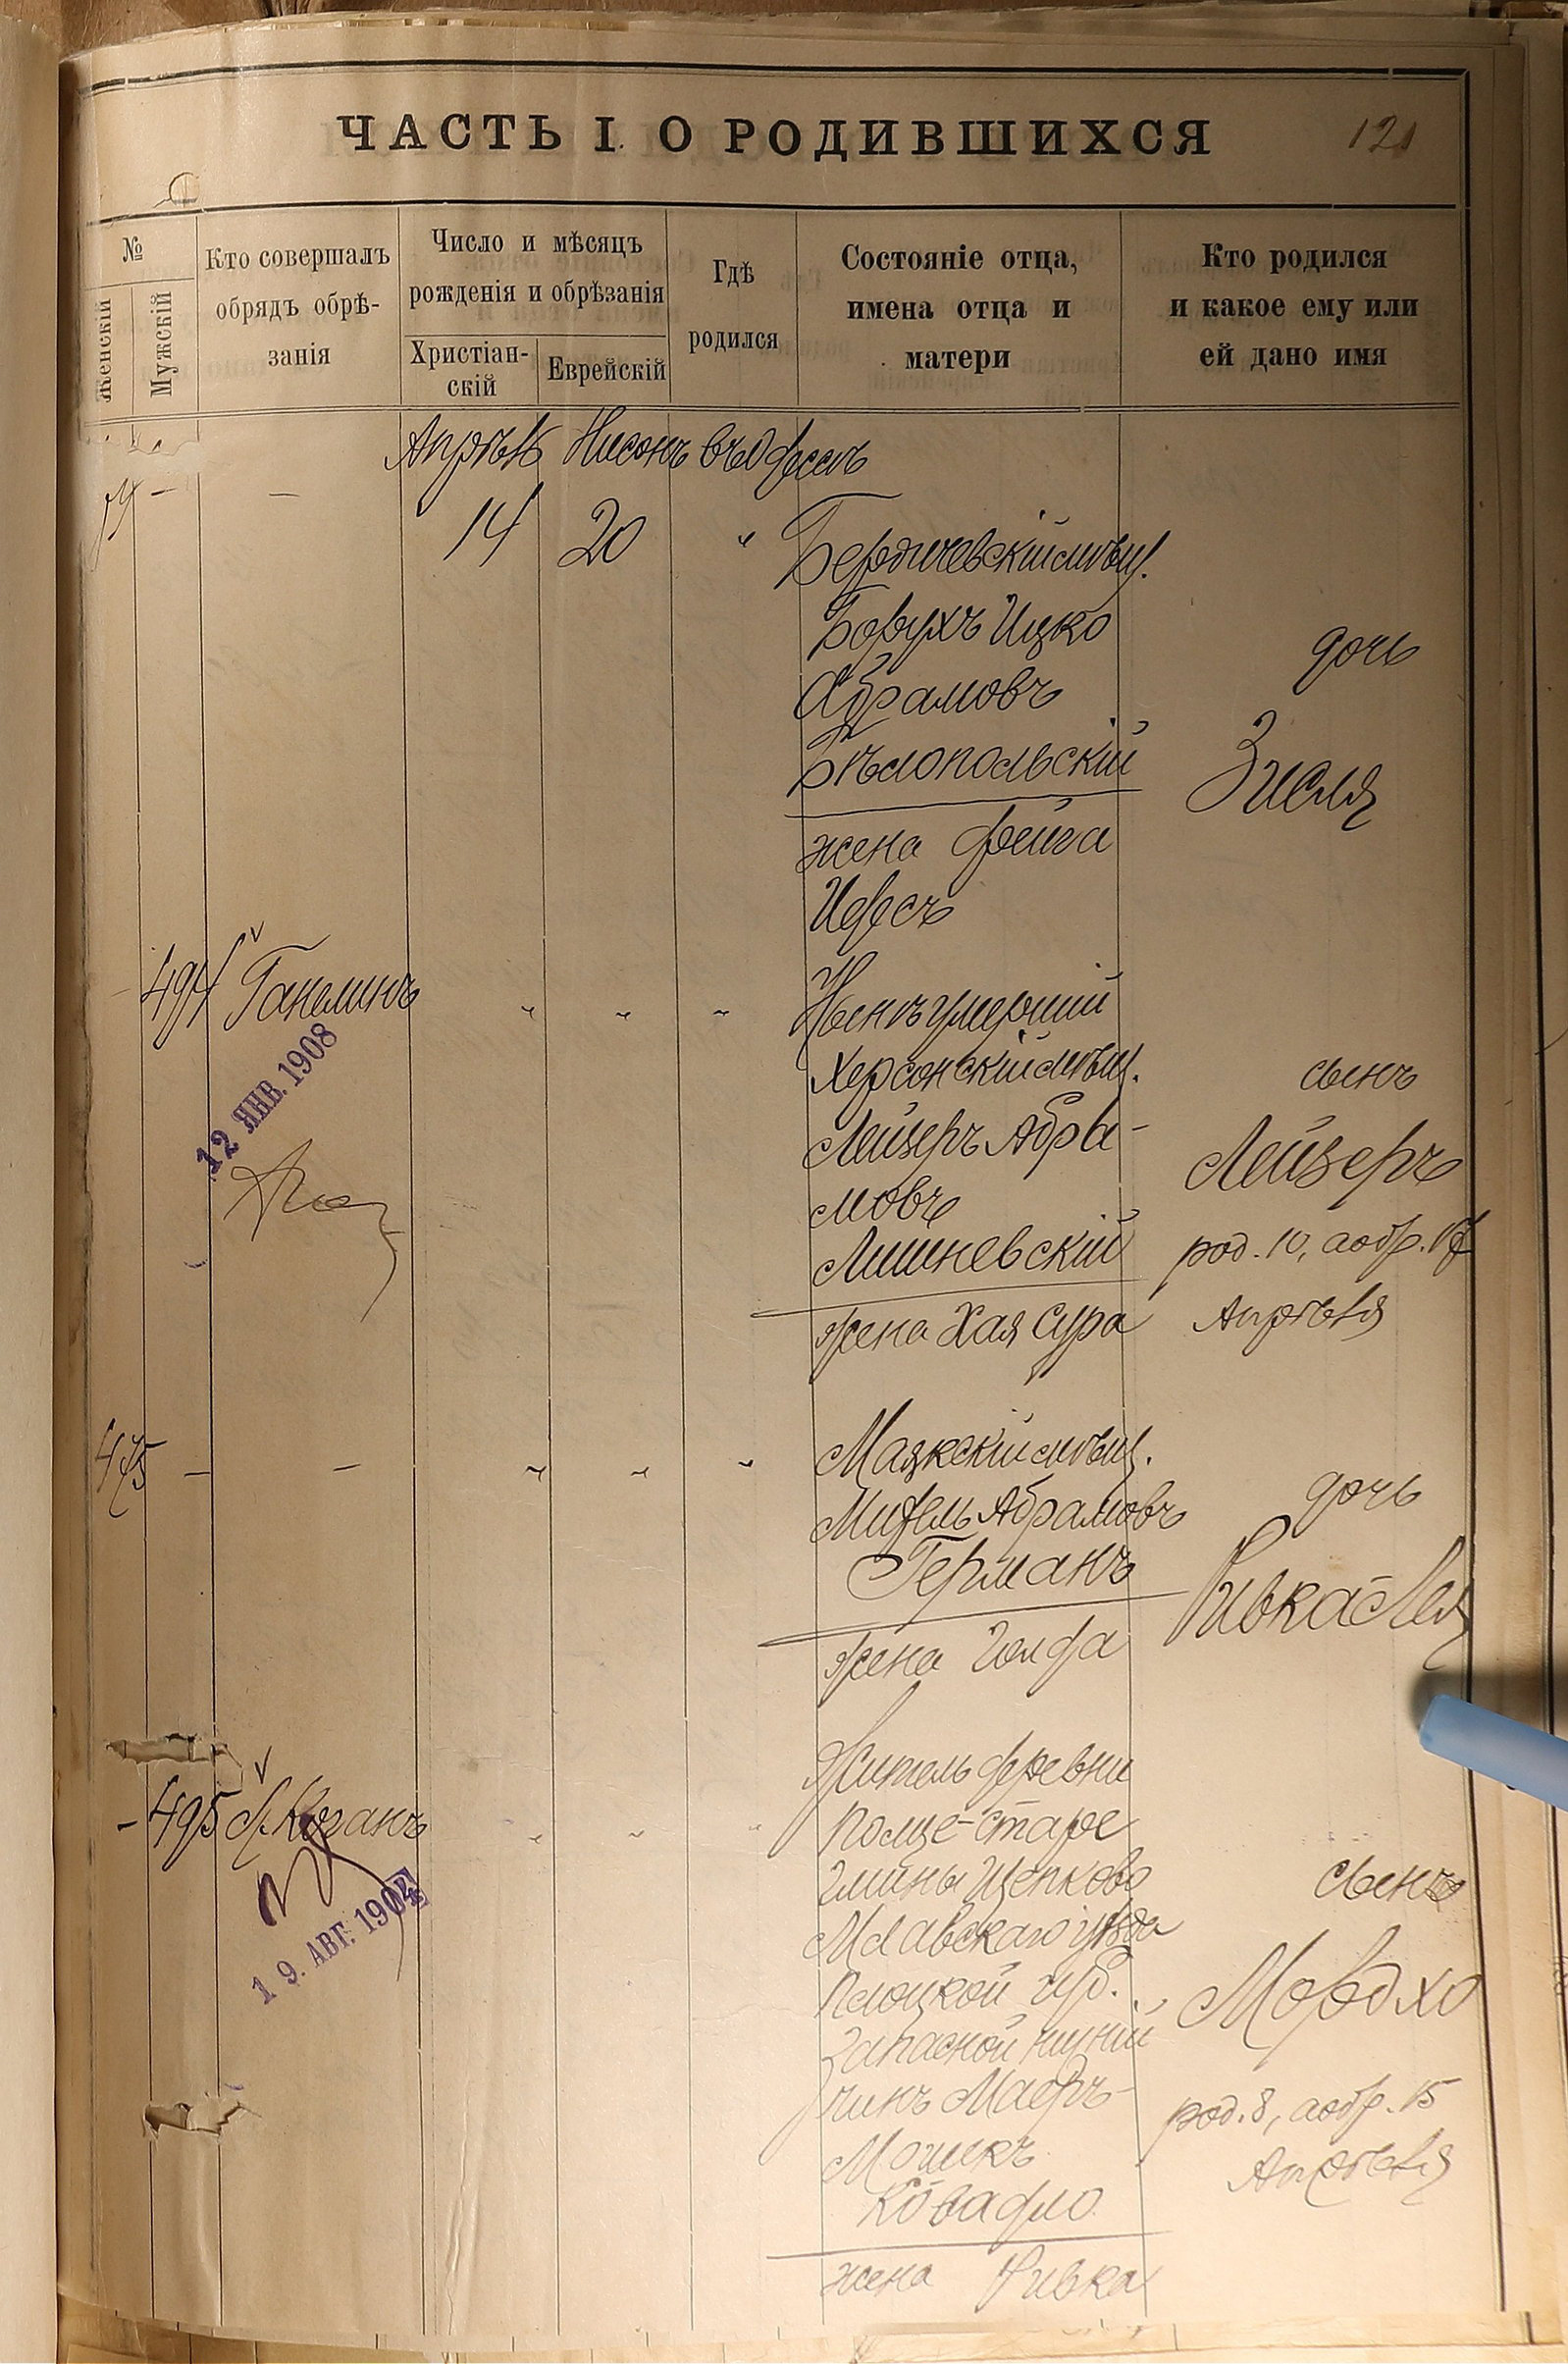 ЧАСТЬ I. О РОДИВШИХСЯ
121
№
Женскій
Мужскій
Кто совершалъ
обрядъ обрѣ-
занія
Число и мѣсяцъ
рожденія и обрѣзанія
Христіан-
скій
Еврейскій
Гдѣ
родился
Состояніе отца,
имена отца и
матери
Кто родился
и какое ему или
ей дано имя
Апрѣль Нисонъ въ Одессѣ
— —
14 20 "
Бердичевскій мѣщ.
Борухъ Ицко
Абрамовъ
Бѣлопольскій
жена Фейга
дочь
Зисля
494 Ганелинъ " " "
12 ЯНВ. 1908
Нынѣ умершій
Херсонскій мѣщ.
Лейзеръ Абра-
мовъ
Лишневскій
жена Хая Сура
сынъ
Лейзеръ
род. 10, а обр. 17
Апрѣля
475 — — " " "
Маякскій мѣщ.
Абрамовъ
Германъ
жена Голда
дочь
Ривка-Лея
- 495 Коганъ " " "
19. АВГ. 1904
Житель деревни
Глины Щепково
Млавскаго уѣзда
Плоцкой губ.
запасной нижній
чинъ Маеръ-
Мошекъ
Ковадло
жена Ривка
сынъ
Мордхо
род. 8, а обр. 15
Апрѣля